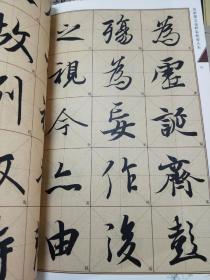 為虛誕齊彭
殤為妄作後
之視今亦由
故列